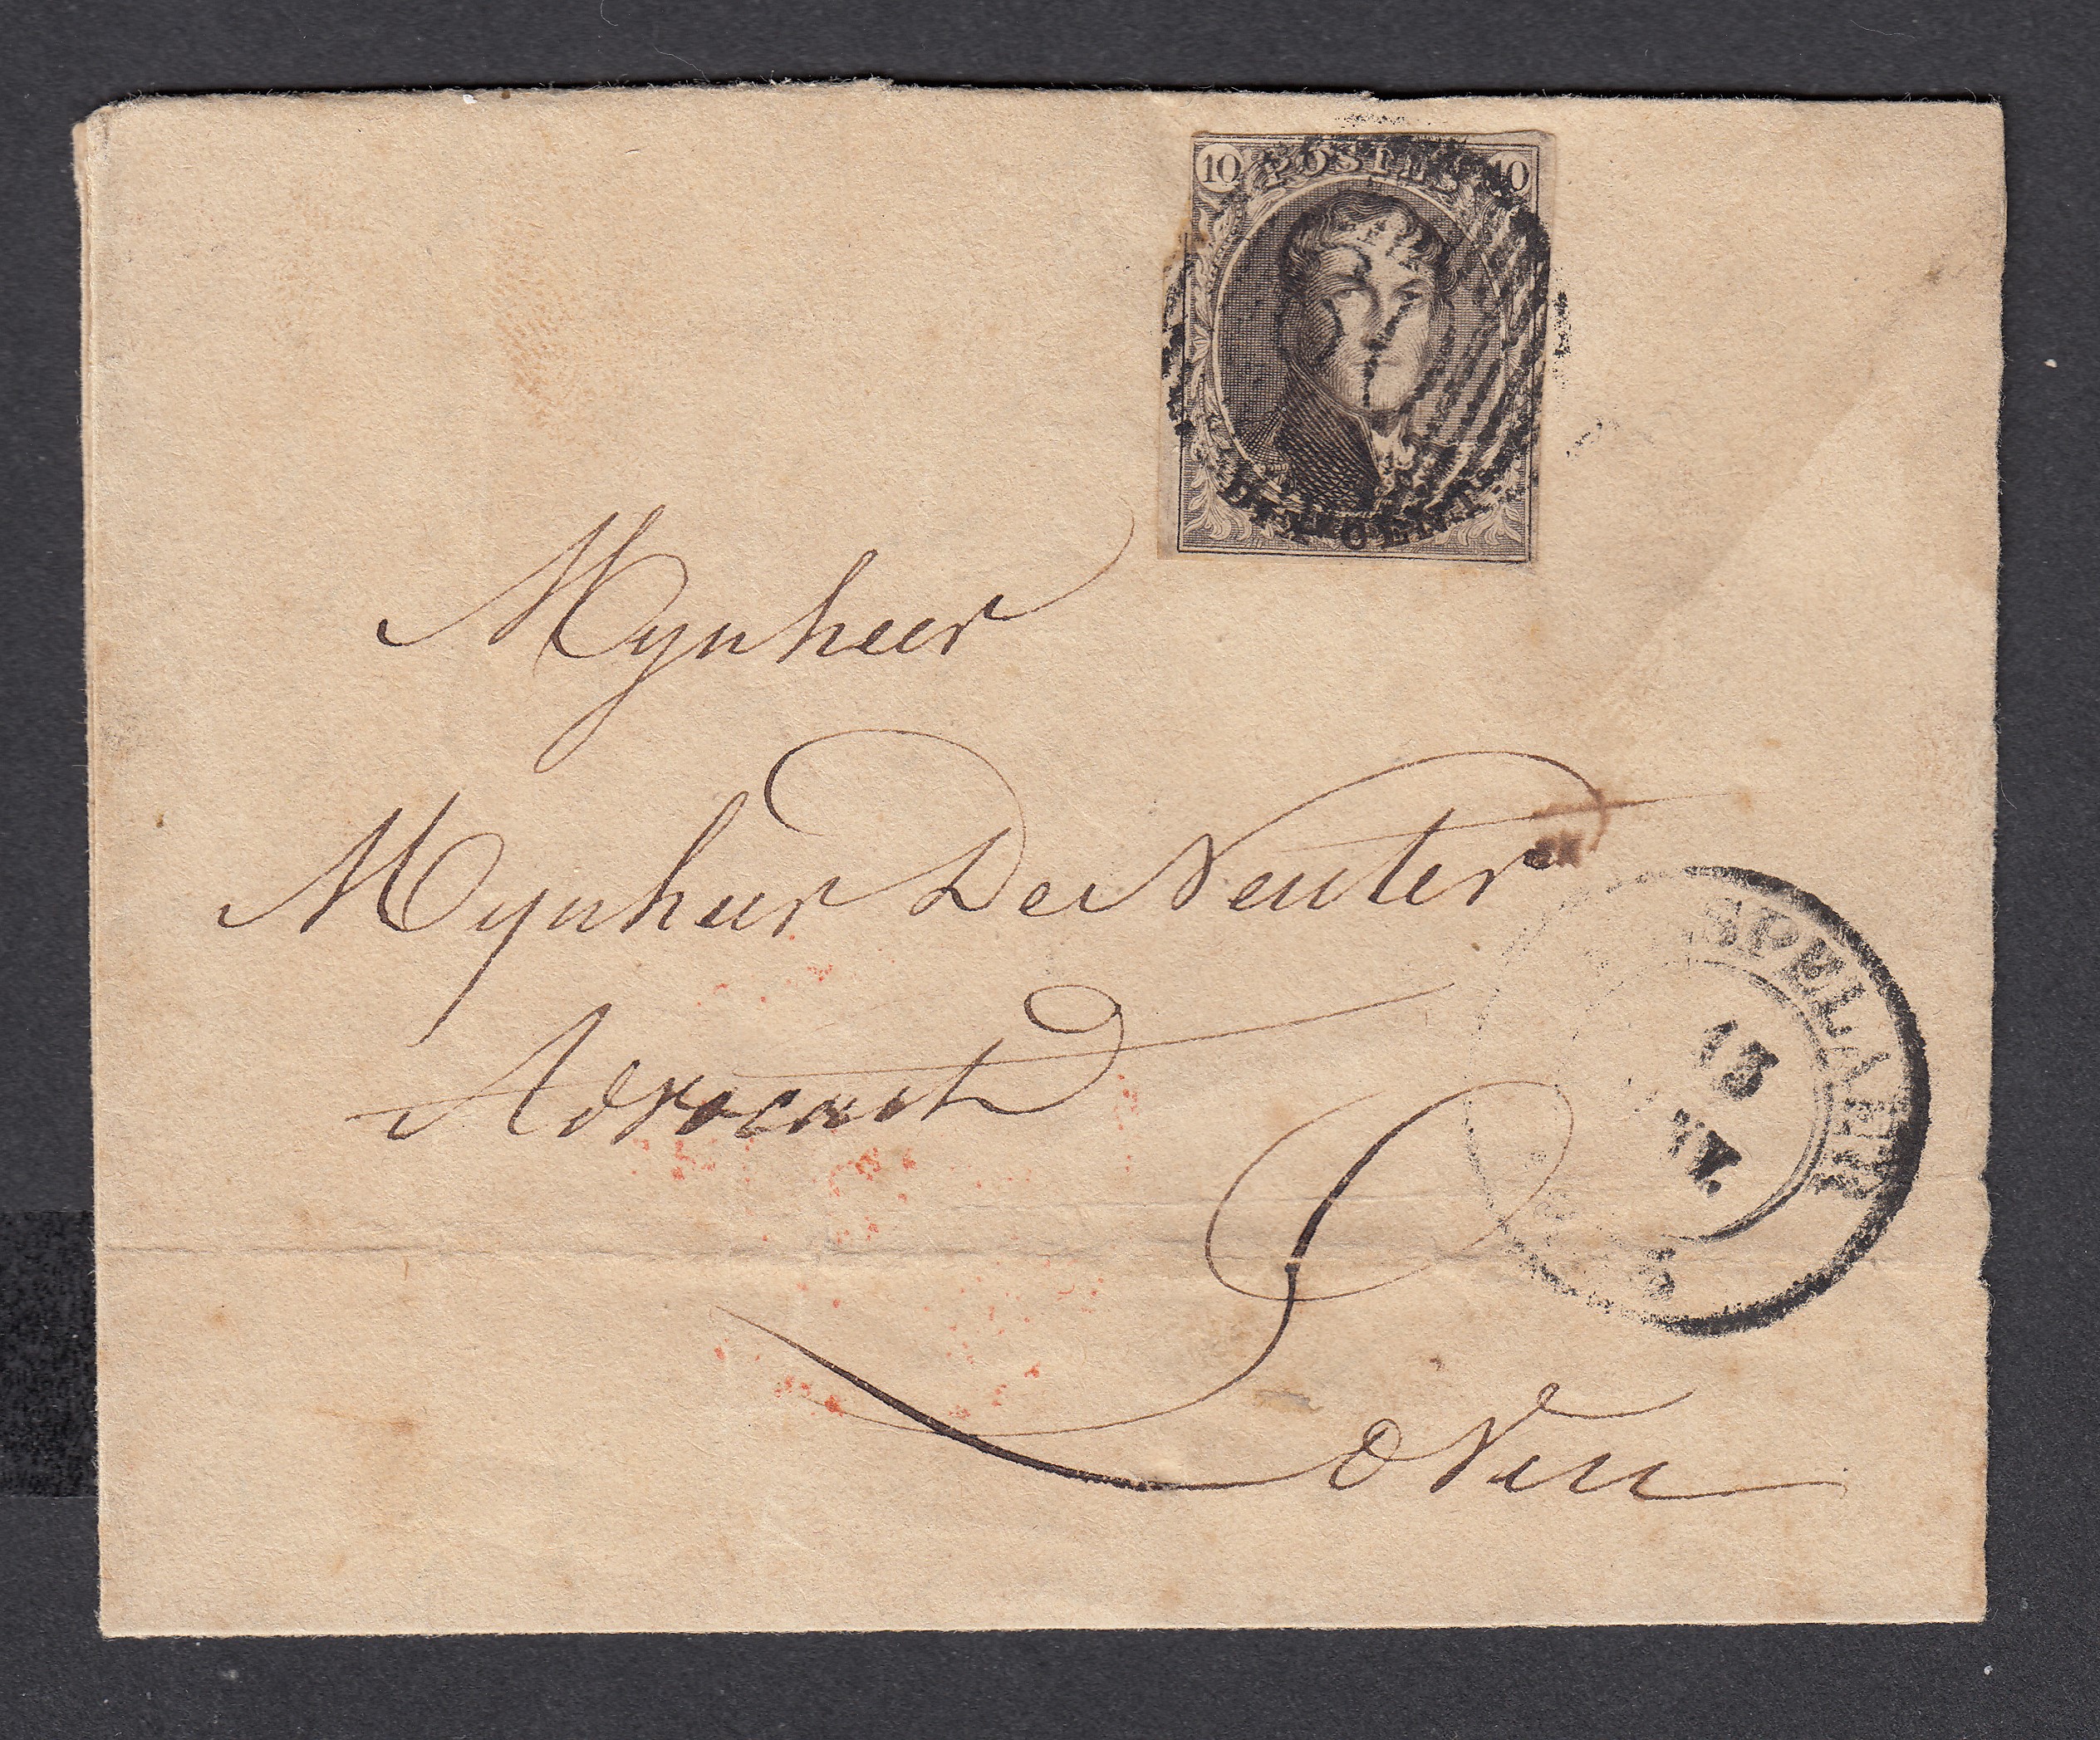 10 POSTES 10
DIX CENT.
Mynheer
Mynheer De Neuter
Advocaet
Loven
SPELAER
13